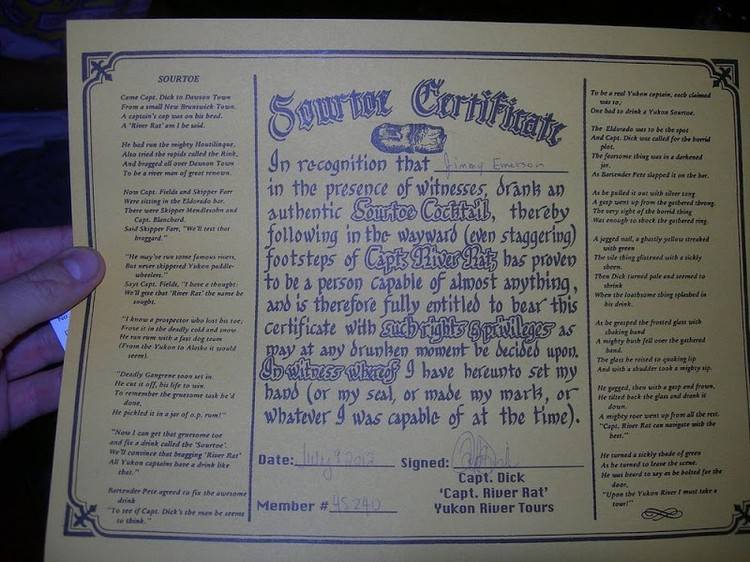 SOURTOE
Come Capt. Dick to Dawson Town
From a small New Brunswick Town.
A captain's cap was on his head.
A 'River Rat' am I he said.
He had run the mighty Houtilinque,
Also tried the rapids called the Rink,
And bragged all over Dawson Town
To be a river man of great renown.
Now Capt. Fields and Skipper Farr
Were sitting in the Eldorado bar.
There were Skipper Mendlesohn and
Capt. Blanchard.
Said Skipper Farr, "We'll test that
braggard."
"He may've run some famous rivers,
But never skippered Yukon paddle-
wheelers."
Says Capt. Fields, "I have a thought:
We'll give that 'River Rat' the name he
sought.
"I know a prospector who lost his toe;
Froze it in the deadly cold and snow.
He ran rum with a fast dog team
(From the Yukon to Alaska it would
seem).
"Deadly Gangrene soon set in.
He cut it off, his life to win.
To remember the gruesome task he'd
done,
He pickled it in a jar of o.p. rum!"
"Now I can get that gruesome toe
and fix a drink called the 'Sourtoe'.
We'll convince that bragging 'River Rat'
All Yukon captains have a drink like
that."
Bartender Pete agreed to fix the awesome
drink
"To see if Capt. Dick's the man he seems
to think."
Sourtoe Certificate
In recognition that Jimmy Emerson
in the presence of witnesses, drank an
authentic Sourtoe Cocktail, thereby
following in the wayward (even staggering)
footsteps of Capt. River Rat has proven
to be a person capable of almost anything,
and is therefore fully entitled to bear this
certificate with such rights & privileges as
may at any drunken moment be decided upon.
In witness whereof I have hereunto set my
hand (or my seal, or made my mark, or
whatever I was capable of at the time).
Date: July 9 2012 Signed:
Capt. Dick
'Capt. River Rat'
Member # 45240 Yukon River Tours
To be a real Yukon captain, each claimed
was to;
One had to drink a Yukon Sourtoe.
The Eldorado was to be the spot
And Capt. Dick was called for the horrid
plot.
The fearsome thing was in a darkened
jar.
As Bartender Pete slapped it on the bar.
As he pulled it out with silver tong
A gasp went up from the gathered throng.
The very sight of the horrid thing
Was enough to shock the gathered ring.
A jagged nail, a ghastly yellow streaked
with green
The vile thing glistened with a sickly
sheen.
Then Dick turned pale and seemed to
shrink
When the loathsome thing splashed in
his drink.
As he grasped the frosted glass with
shaking hand
A mighty hush fell over the gathered
band.
The glass he raised to quaking lip
And with a shudder took a mighty sip.
He gagged, then with a gasp and frown,
He tilted back the glass and drank it
down.
A mighty roar went up from all the rest.
"Capt. River Rat can navigate with the
best."
He turned a sickly shade of green
As he turned to leave the scene.
He was heard to say as he bolted for the
door,
"Upon the Yukon River I must take a
tour!"